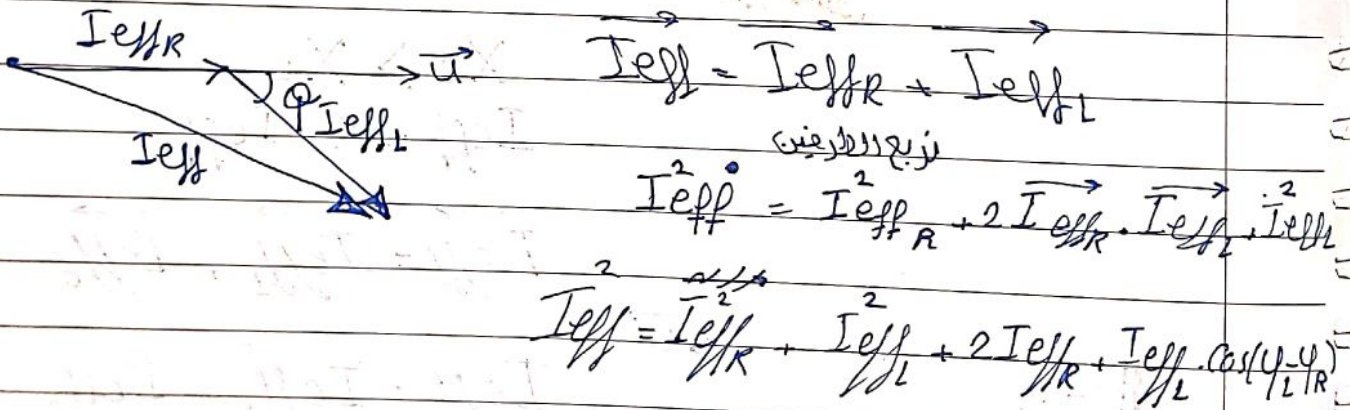 I eff R
→u
φ
I eff L
I eff
→I eff = →I eff R + →I eff L
نربع الطرفين
I²eff = I²eff R + 2 →I eff R . →I eff L + I²eff L
I²eff = I²eff R + I²eff L + 2 I eff R + I eff L . Cos(φL-φR)